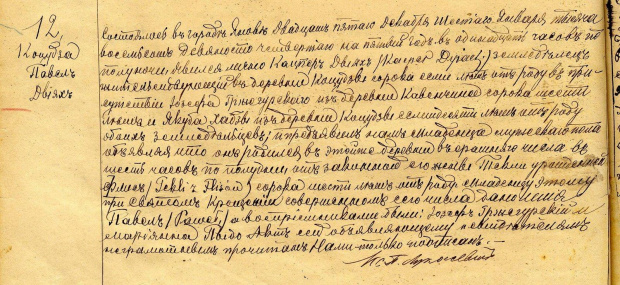 12,
Коцудза
Павелъ
Дыяхъ
Состоялось въ городкѣ Яновѣ двадцать пятаго Декабря Шестаго Января тысяча
восемьсотъ девяносто четвертаго на пятый годъ въ одинадцать часовъ по
полуночи. Явился лично Касперъ Дыяхъ /Kacper Dyjach/ земледѣлецъ
жительствующій въ деревнѣ Коцудзѣ сорока семи лѣтъ отъ роду въ при-
сутствіи Іозефа Гржегурскаго изъ деревни Кавенчина сорока шести
лѣтъ и Якуба изъ деревни Коцудзы семидесяти лѣтъ отъ роду
обоихъ земледѣльцевъ, и предъявилъ намъ младенца мужескаго пола
объявляя что онъ родился въ этой же деревнѣ въ числа въ
шесть часовъ по полудни отъ законной его жены Текли урожденной
/Tekli z сорока шести лѣтъ отъ роду. Младенцу этому
при Святомъ Крещеніи совершенномъ сего числа дано имя
Павелъ /Paweł/, а воспріемниками были: Іозефъ Гржегурскій и
Марьянна Актъ сей объявляющему и свидѣтелямъ
неграмотнымъ прочитанъ Нами только подписанъ. —